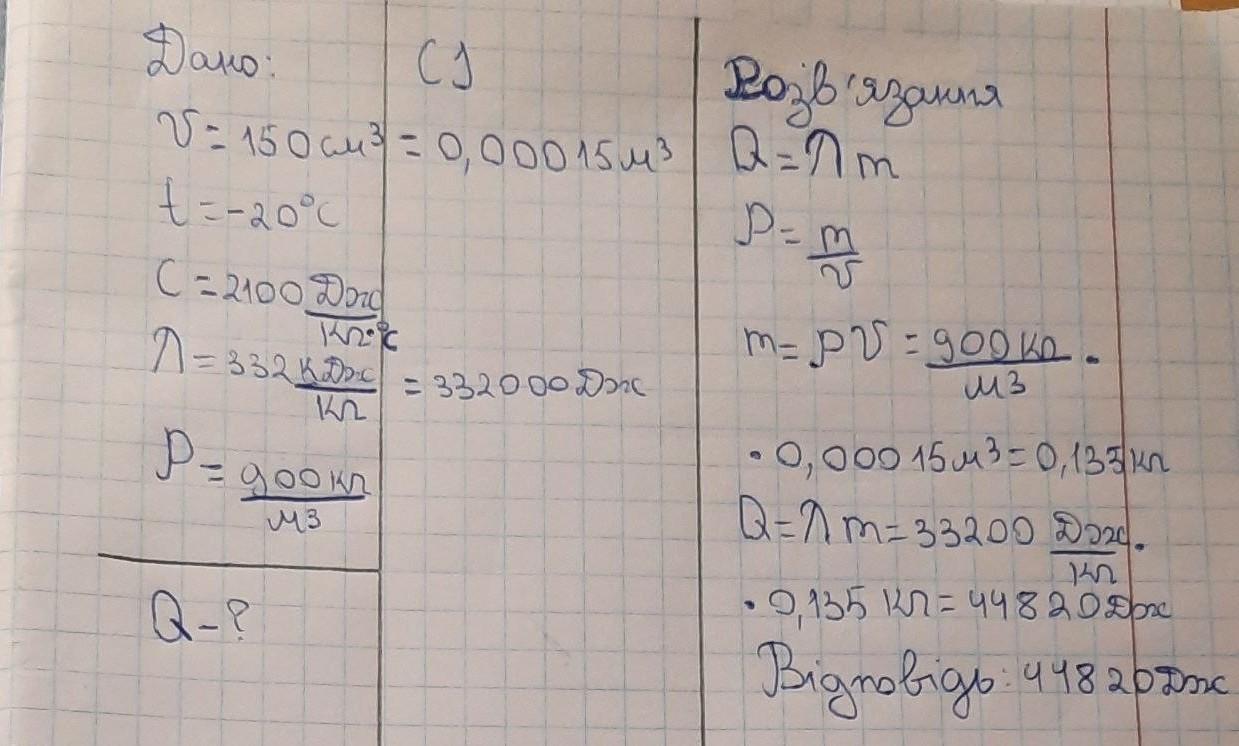 Дано:
V = 150 см³
t = -20°C
C = 2100 Дж/кг·°C
λ = 332 кДж/кг
ρ = 900 кг/м3
Q - ?
СІ
= 0,00015 м³
= 332000 Дж
Розв'язання
Q = λ m
ρ = m/V
m = ρV = 900 кг/м3 ·
· 0,00015 м³ = 0,135 кг
Q = λ m = 33200 Дж/кг ·
· 0,135 кг = 44820 Дж
Відповідь: 44820 Дж